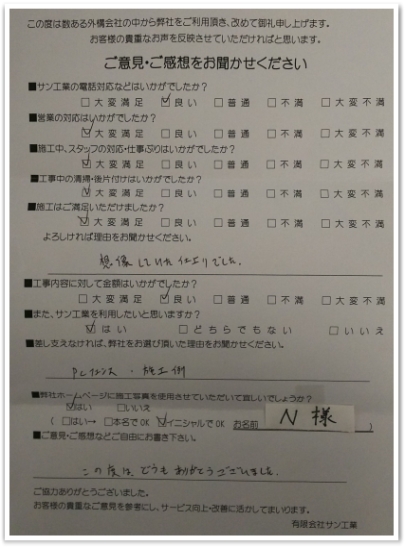 この度は数ある外構会社の中から弊社をご利用頂き、改めて御礼申し上げます。
お客様の貴重なお声を反映させていただければと思います。
ご意見・ご感想をお聞かせください
■サン工業の電話対応などはいかがでしたか?
□大変満足 ☑良い □普通 □不満 □大変不満
■営業の対応はいかがでしたか?
☑大変満足 □良い □普通 □不満 □大変不満
■施工中、スタッフの対応・仕事ぶりはいかがでしたか?
☑大変満足 □良い □普通 □不満 □大変不満
■工事中の清掃・後片付けはいかがでしたか?
☑大変満足 □良い □普通 □不満 □大変不満
■施工はご満足いただけましたか?
☑大変満足 □良い □普通 □不満 □大変不満
よろしければ理由をお聞かせください。
想像していた仕上りでした。
■工事内容に対して金額はいかがでしたか?
□大変満足 ☑良い □普通 □不満 □大変不満
■また、サン工業を利用したいと思いますか?
☑はい □どちらでもない □いいえ
■差し支えなければ、弊社をお選び頂いた理由をお聞かせください。
・施工例
■弊社ホームページに施工写真を使用させていただいて宜しいでしょうか?
☑はい □いいえ
(□はい→ □本名でOK ☑イニシャルでOK お名前 N様 )
■ご意見・ご感想などご自由にお書き下さい。
この度は、どうもありがとうございました。
ご協力ありがとうございました。
お客様の貴重なご意見を参考にし、サービス向上・改善に活かしてまいります。
有限会社サン工業